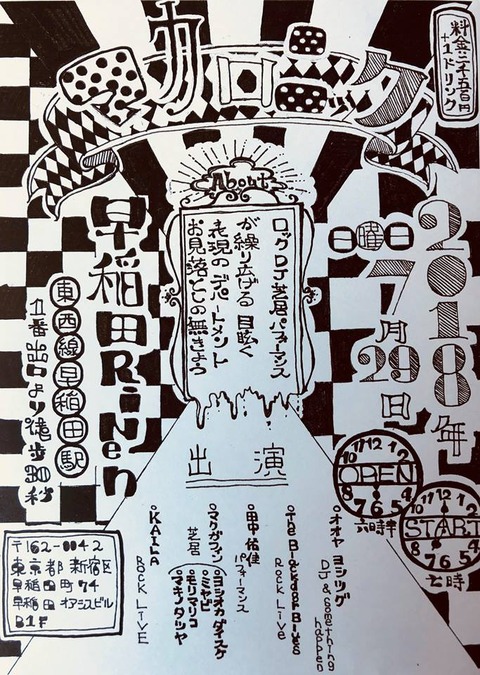 マカロニック
料金二千五百円
+1ドリンク
About
ロックDJ芝居パフォーマンス
が繰り広げる目眩く
表現のデパートメント
お見落としの無きよう
2018年
7月29日
日曜日
早稲田RiNen
東西線早稲田駅
1番出口より徒歩30秒
OPEN
六時半
START
七時
出演
・オオヤヨシツグ
DJ & Something happen
・The Blues
ROCK LIVE
・田中佑佳
パフォーマンス
・マクガフィン
芝居
ヨシオカダイスケ
ミヤビ
モリマリコ
マキノタツヤ
・KAILA
ROCK LIVE
〒162-0042
東京都新宿区
早稲田町74
早稲田オアシスビル
B1F